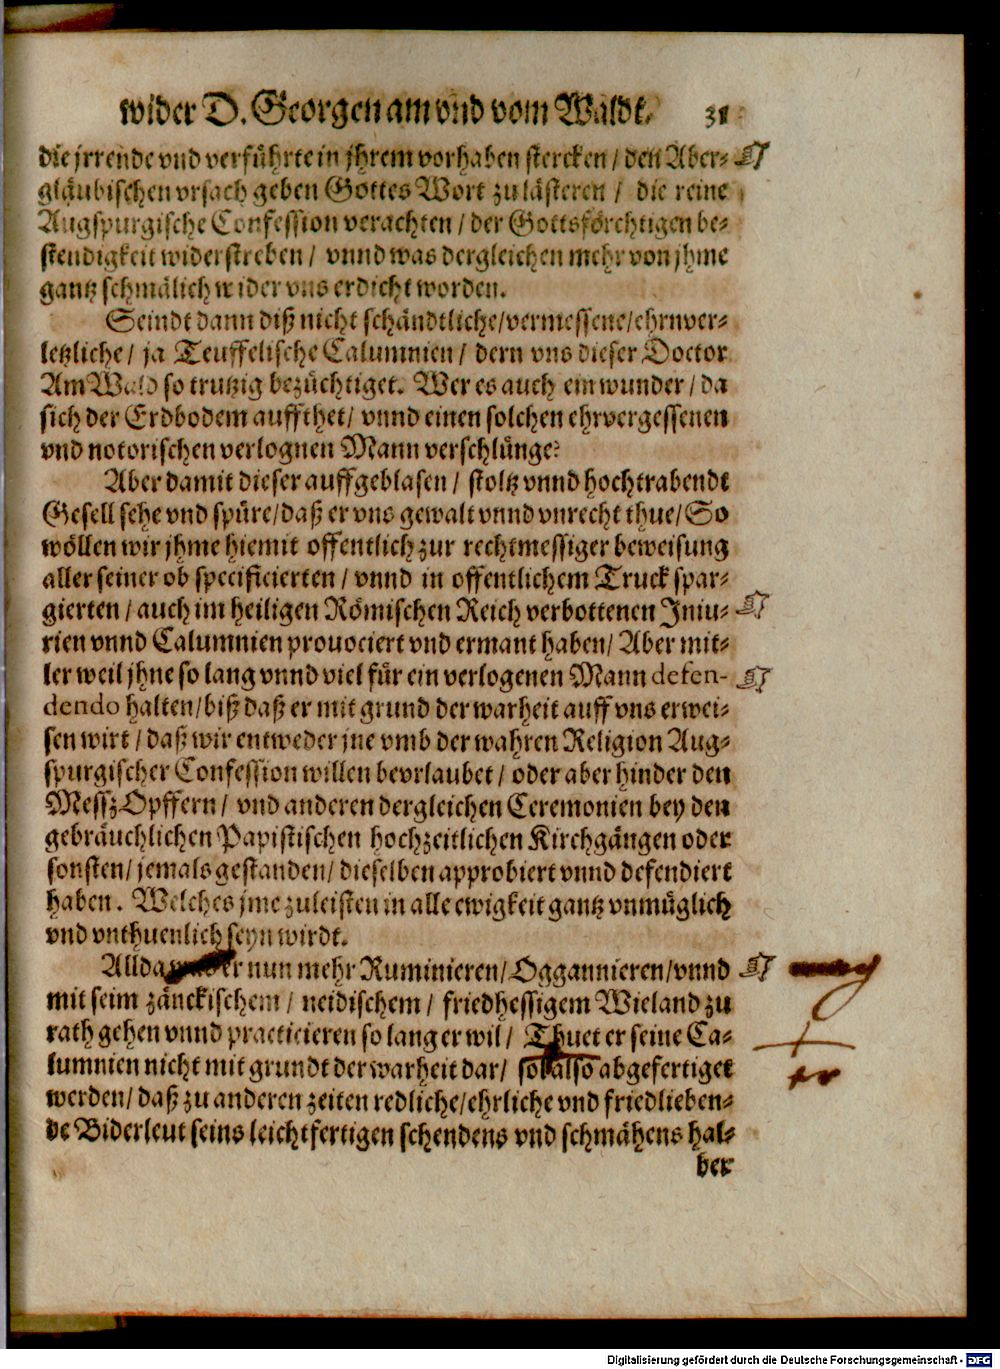 wider D. Georgen am vnd vom Waldt. 31
die jrrende vnd verführte in jhrem vorhaben stercken / den Aber-
gläubischen vrsach geben Gottes Wort zu lästeren / die reine
Augspurgische Confession verachten / der Gottsförchtigen be-
stendigkeit widerstreben / vnnd was dergleichen mehr von jhme
gantz schmälich wider vns erdicht worden.
Seindt dann diß nicht schändtliche/vermessene/ehrnver-
letzliche / ja Teuffelische Calumnien / dern vns dieser Doctor
Am Wald so trutzig bezüchtiget. Wer es auch ein wunder / da
sich der Erdbodem auffthet/ vnnd einen solchen ehrvergessenen
vnd notorischen verlognen Mann verschlünge?
Aber damit dieser auffgeblasen / stoltz vnnd hochtrabendt
Gesell sehe vnd spüre/daß er vns gewalt vnnd vnrecht thue/So
wöllen wir jhme hiemit offentlich zur rechtmessiger beweisung
aller seiner ob specificierten / vnnd in offentlichem Truck spar-
gierten / auch im heiligen Römischen Reich verbottenen Iniu-
rien vnnd Calumnien prouociert vnd ermant haben/ Aber mit-
ler weil jhne so lang vnnd viel für ein verlogenen Mann defen-
dendo halten/biß daß er mit grund der warheit auff vns erwei-
sen wirt / daß wir entweder jne vmb der wahren Religion Aug-
spurgischer Confession willen bevrlaubet / oder aber hinder den
MesszOpffern / vnd anderen dergleichen Ceremonien bey den
gebräuchlichen Papistischen hochzeitlichen Kirchgängen oder
sonsten/ jemals gestanden/ dieselben approbiert vnnd defendiert
haben. Welches jme zuleisten in alle ewigkeit gantz vnmüglich
vnd vnthuenlich seyn wirdt.
Allda er nun mehr Ruminieren/Oggannieren/vnnd may
mit seim zänckischem / neidischem / friedhessigem Wieland zu
rath gehen vnnd practicieren so lang er wil / Thuet er seine Ca-
lumnien nicht mit grundt der warheit dar/ so also abgefertiget er
werden/ daß zu anderen zeiten redliche/ehrliche vnd friedlieben-
de Biderleut seins leichtfertigen schendens vnd schmähens hal-
ber
Digitalisierung gefördert durch die Deutsche Forschungsgemeinschaft - DFG